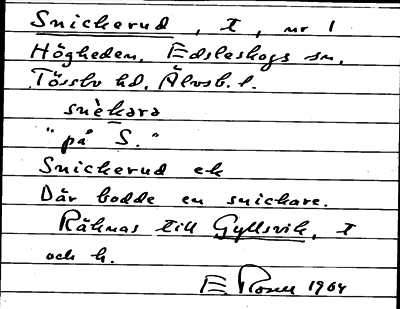 Snickerud, T, nr 1
Högheden, Edsleskogs sn,
Tössbo hd, Älvsb. l.
snèkara
"på S."
Snickerud ek
Där bodde en snickare.
Räknas till Gyllsvik, T
och h.
E Rosell 1964